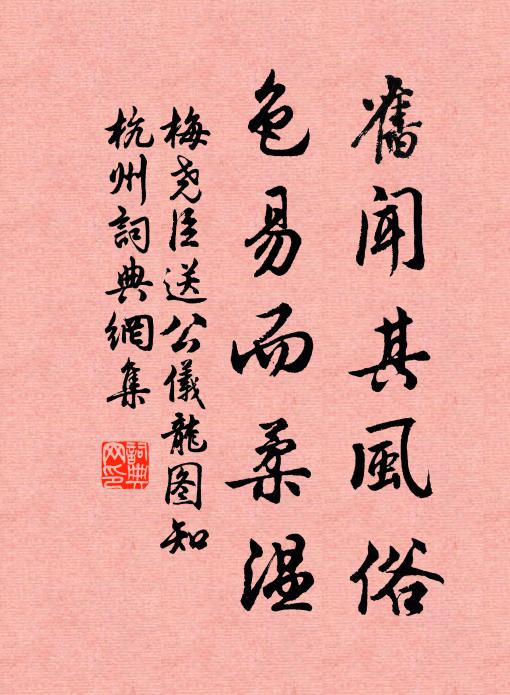 舊聞其風俗
色易而柔温
梅堯臣送公儀龍图知
杭州詞典網集
詞典
网印